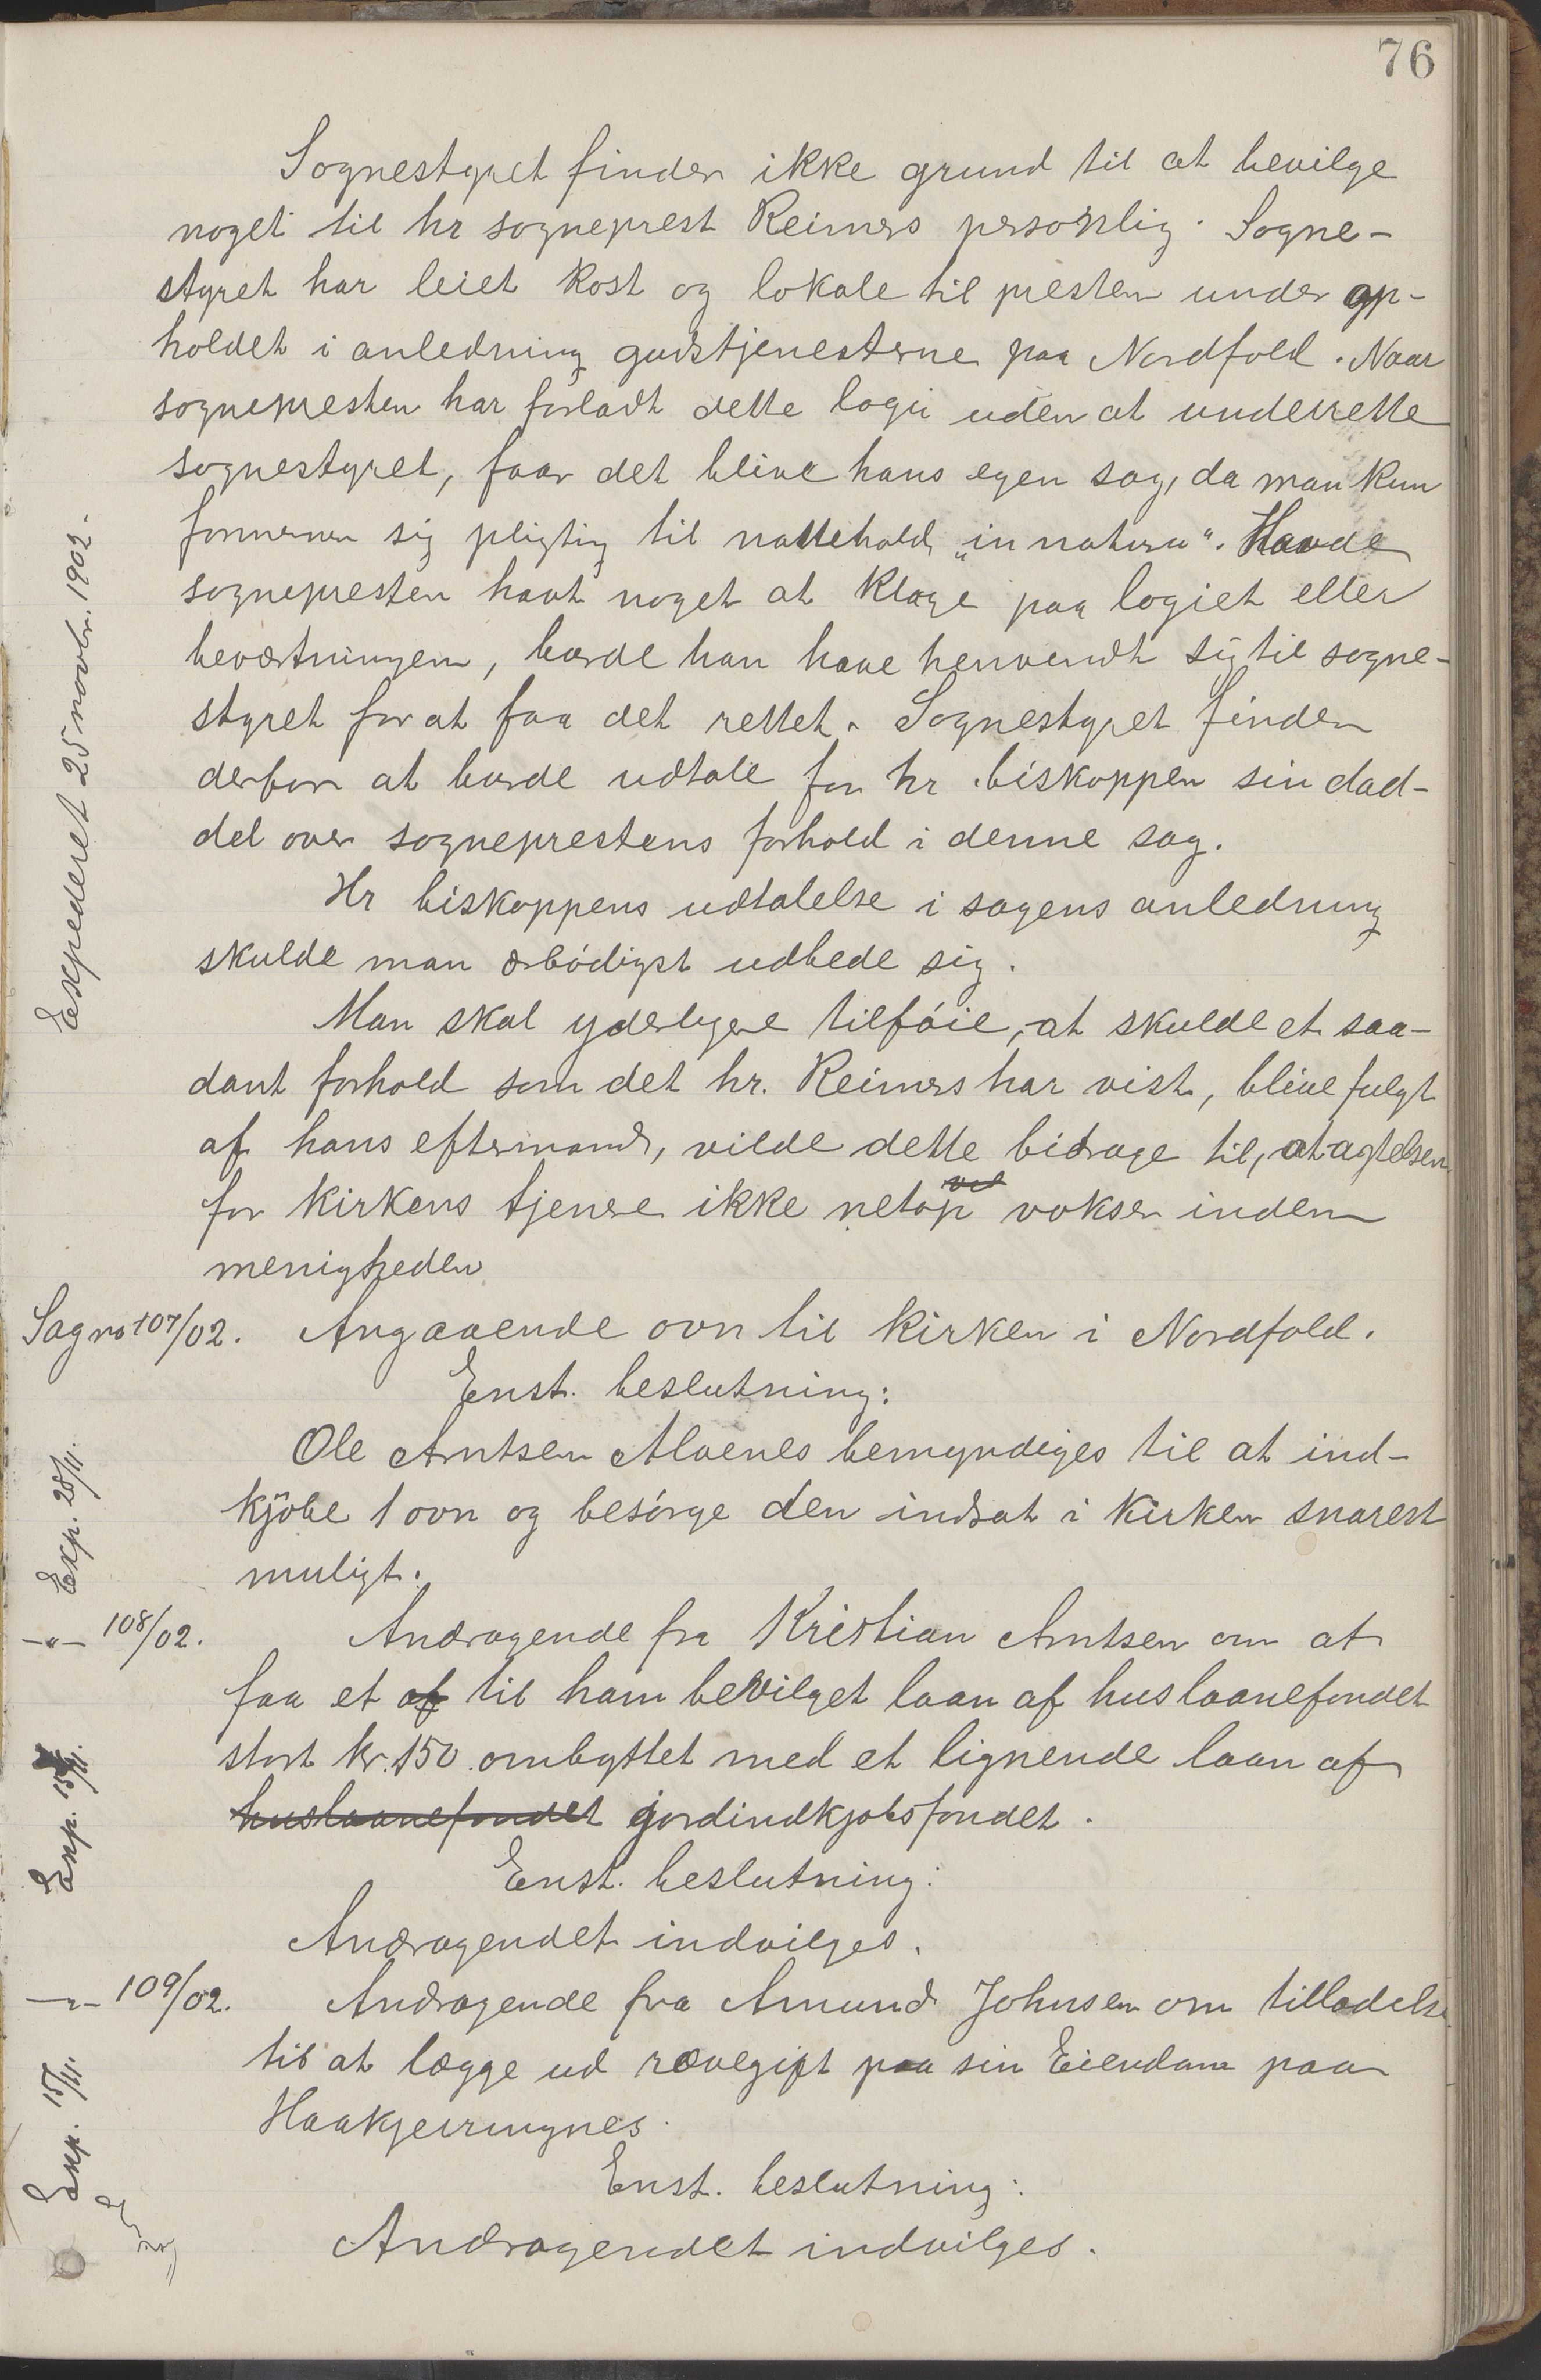 76
Sognestyret finder ikke grund til at bevilge
noget til hr sogneprest Reimers personlig. Sogne-
styret har leiet kost og lokale til presten under op-
holdet i anledning gudstjenesterne paa Nordfold. Naar
sognepresten har forladt dette logi uden at underrette
sognestyret, faar det blive hans egen sag, da man kun
formener sig pligtig til nattehold "in natura". Havde
sognepresten havt noget at klage paa logiet eller
beværtningen, burde han have henvendt sig til sogne-
styret for at faa det rettet. Sognestyret finder
derfor at burde udtale for hr. biskoppen sin dad-
del over sogneprestens forhold i denne sag.
Hr biskoppens udtalelse i sagens anledning
skulde man ærbödigst udbede sig.
Expederet 25 novbr. 1902.
Man skal yderligere tilföie, at skulde et saa-
dant forhold som det hr. Reimers har vist, blive fulgt
af hans eftermand, vilde dette bidrage til, at agtelsen
for kirkens tjenere ikke netop vokser inden
menigheden
Sag no 107/02. Angaaende ovn til kirken i Nordfold.
Enst. beslutning:
Ole Arntsen Alvenes bemyndiges til at ind-
kjöbe 1 ovn og besörge den indsat i kirken snarest
muligt.
Exp. 28/11.
-"- 108/02. Andragende fra Kristian Arntsen om at
faa et af til ham bevilget laan af huslaanefondet
stort kr. 150 ombyttet med et lignende laan af
huslaanefondet jordindkjøbsfondet.
Exp. 15/11.
Enst. beslutning:
Andragendet indvilges.
-"- 109/02. Andragende fra Amund Johnsen om tilladelse
til at lægge ud rævegift paa sin Eiendom paa
Haakjerringnes.
Exp. 15/11.
Enst. beslutning:
Andragendet indvilges.